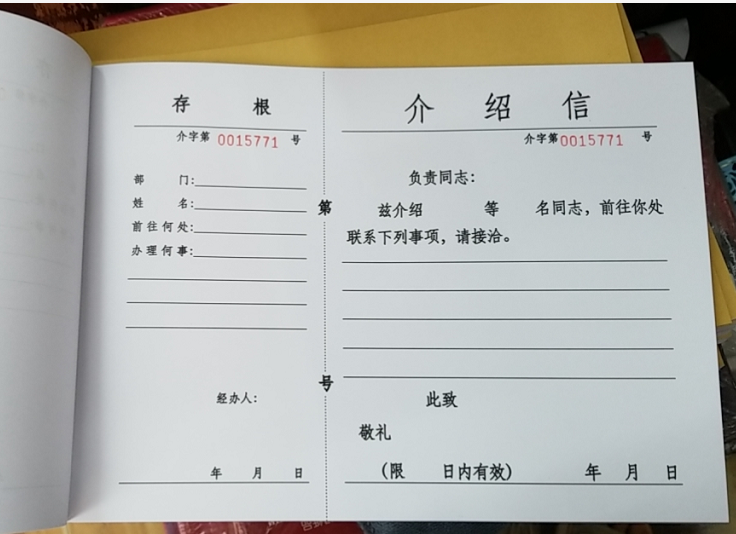 存 根
介字第 0015771 号
部 门:
姓 名:
前往何处:
办理何事:
经办人:
年 月 日
第
号
介 绍 信
介字第 0015771 号
负责同志:
兹介绍 等 名同志，前往你处
联系下列事项，请接洽。
此致
敬礼
(限 日内有效) 年 月 日